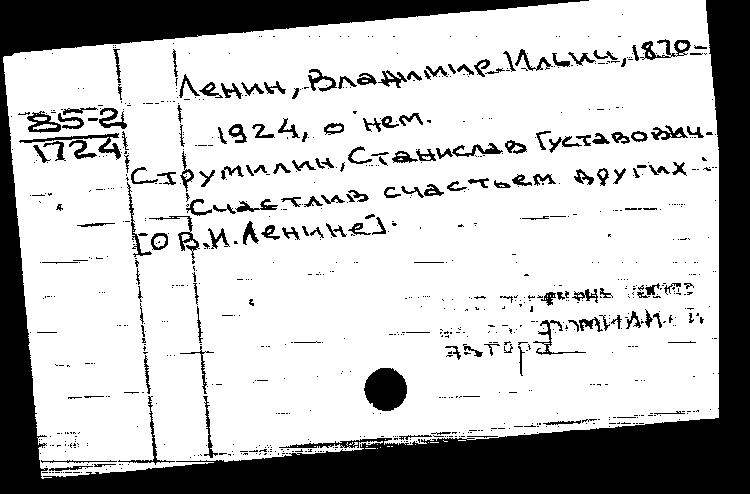 Ленин, Владимир Ильич, 1870-
85-2
1924, о нем.
1724
Струмилин, Станислав Густавович.
Счастлив счастьем других :
[О В.И.Ленине].
фамилией
автора